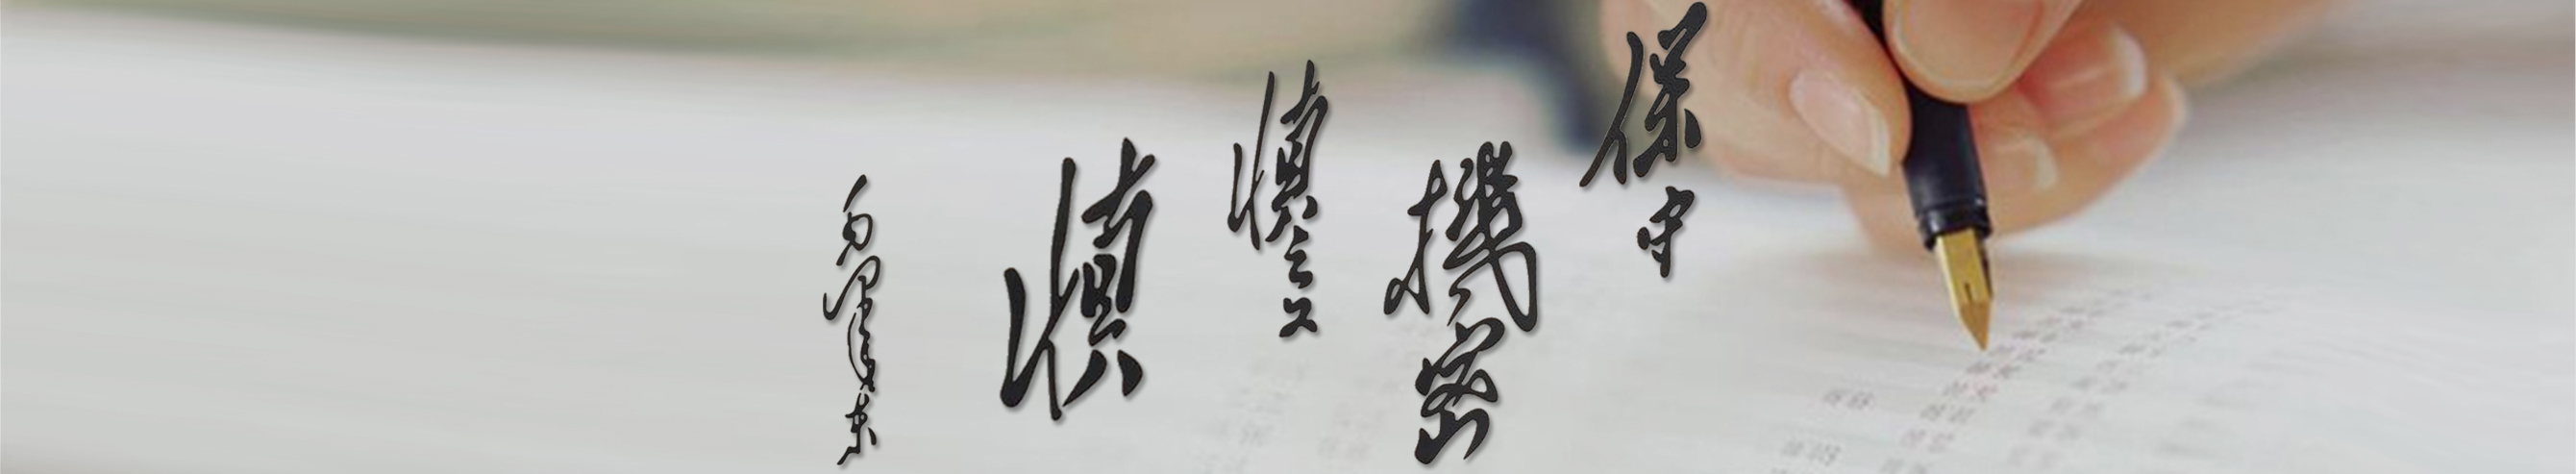 保守
機密
慎之又
慎
毛澤东